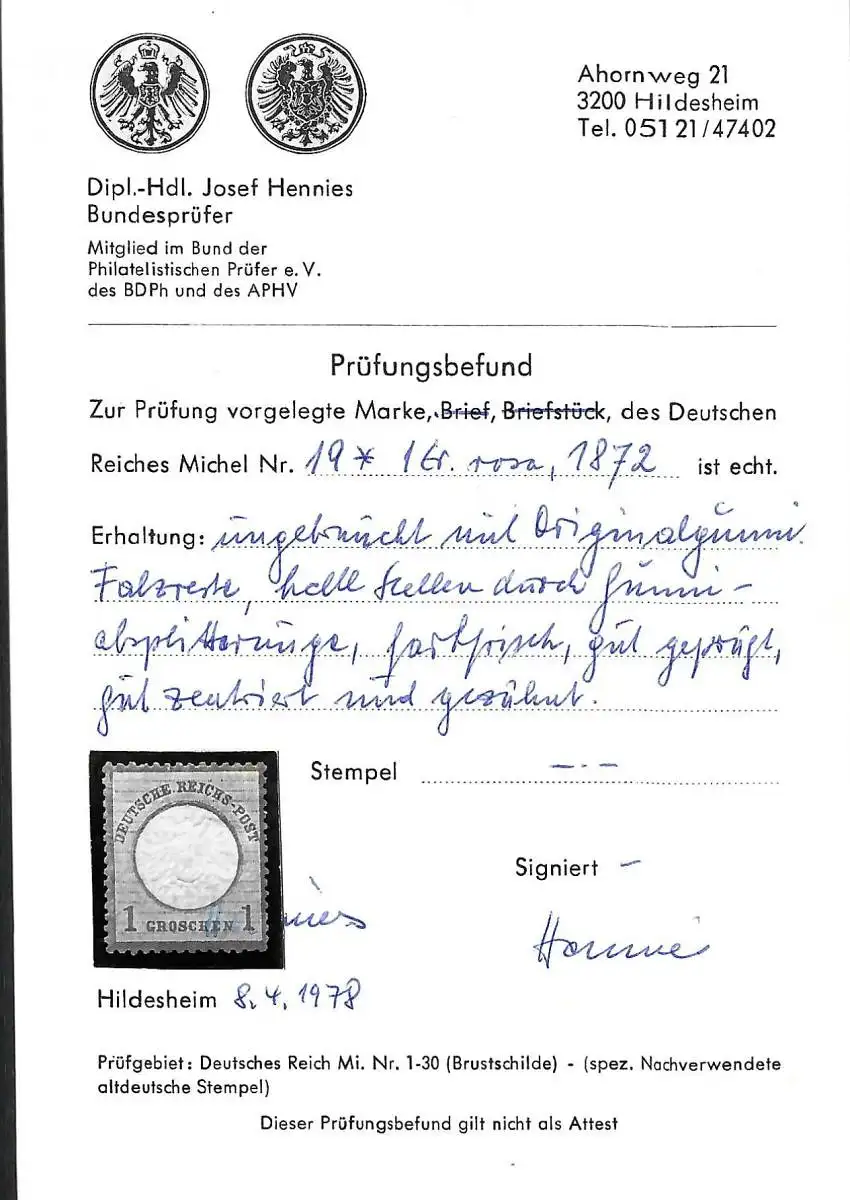 Ahornweg 21
3200 Hildesheim
Tel. 051 21/47402
Dipl.-Hdl. Josef Hennies
Bundesprüfer
Mitglied im Bund der
Philatelistischen Prüfer e. V.
des BDPh und des APHV
Prüfungsbefund
Zur Prüfung vorgelegte Marke, Brief, Briefstück, des Deutschen
Reiches Michel Nr. 19* 1 Gr. rosa, 1872 ist echt.
Erhaltung: ungebraucht mit Originalgummi.
Falzreste, helle Stellen durch Gummi-
absplitterunge, farbfrisch, gut geprägt,
gut zentriert und gezähnt.
Stempel —.—
DEUTSCHE REICHS-POST
1 GROSCHEN 1
Signiert —
Hennies
Hildesheim 8.4.1978
Prüfgebiet: Deutsches Reich Mi. Nr. 1-30 (Brustschilde) - (spez. Nachverwendete
altdeutsche Stempel)
Dieser Prüfungsbefund gilt nicht als Attest